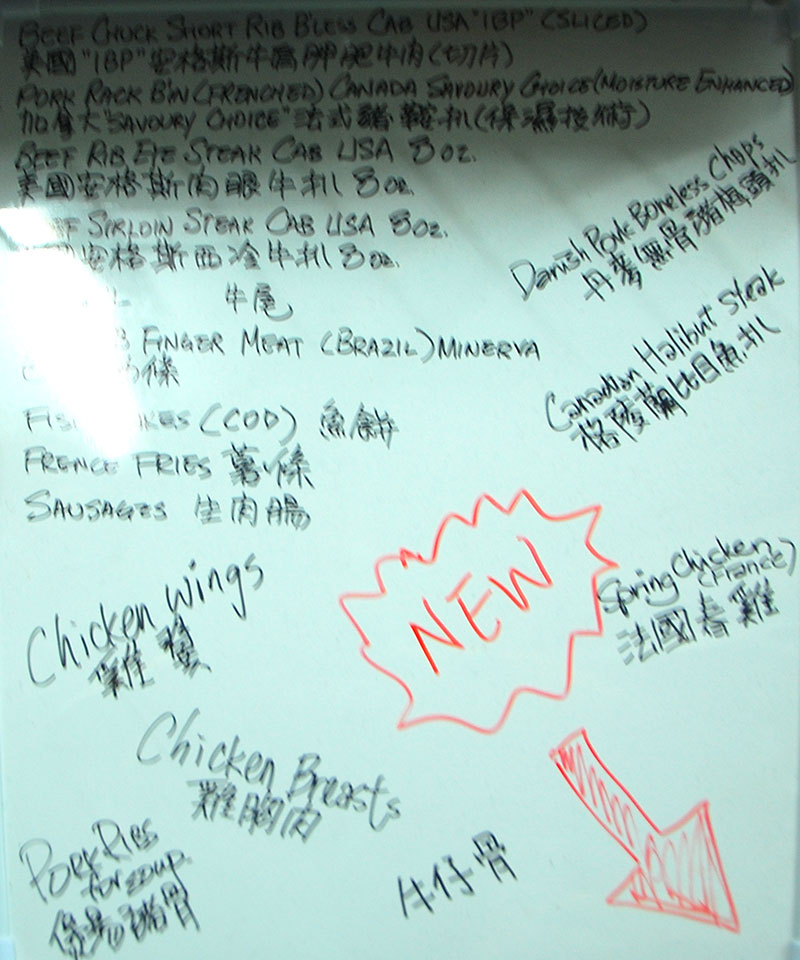 BEEF CHUCK SHORT RIB B'LESS CAB USA "IBP" (SLICED)
美國"IBP"安格斯牛肩胛肥牛肉(切片)
PORK RACK B'IN (FRENCHED) CANADA SAVOURY CHOICE (MOISTURE ENHANCED)
加拿大"SAVOURY CHOICE"法式豬鞍扒(保濕技術)
BEEF RIB EYE STEAK CAB USA 8 OZ.
美國安格斯肉眼牛扒 8 oz.
SIRLOIN STEAK CAB USA 8 OZ.
安格斯西冷牛扒 8 oz.
牛尾
FINGER MEAT (BRAZIL) MINERVA
條
(COD) 魚餅
FRENCE FRIES 薯條
SAUSAGES 牛肉腸
Danish Pork Boneless Chops
丹麥無骨豬梅頭扒
Canadian Halibut Steak
格陵蘭比目魚扒
NEW
Spring Chicken
(France)
法國春雞
Chicken Wings
雞翼
Chicken Breasts
雞胸肉
PORK RIBS
for soup
煲湯豬骨
牛仔骨